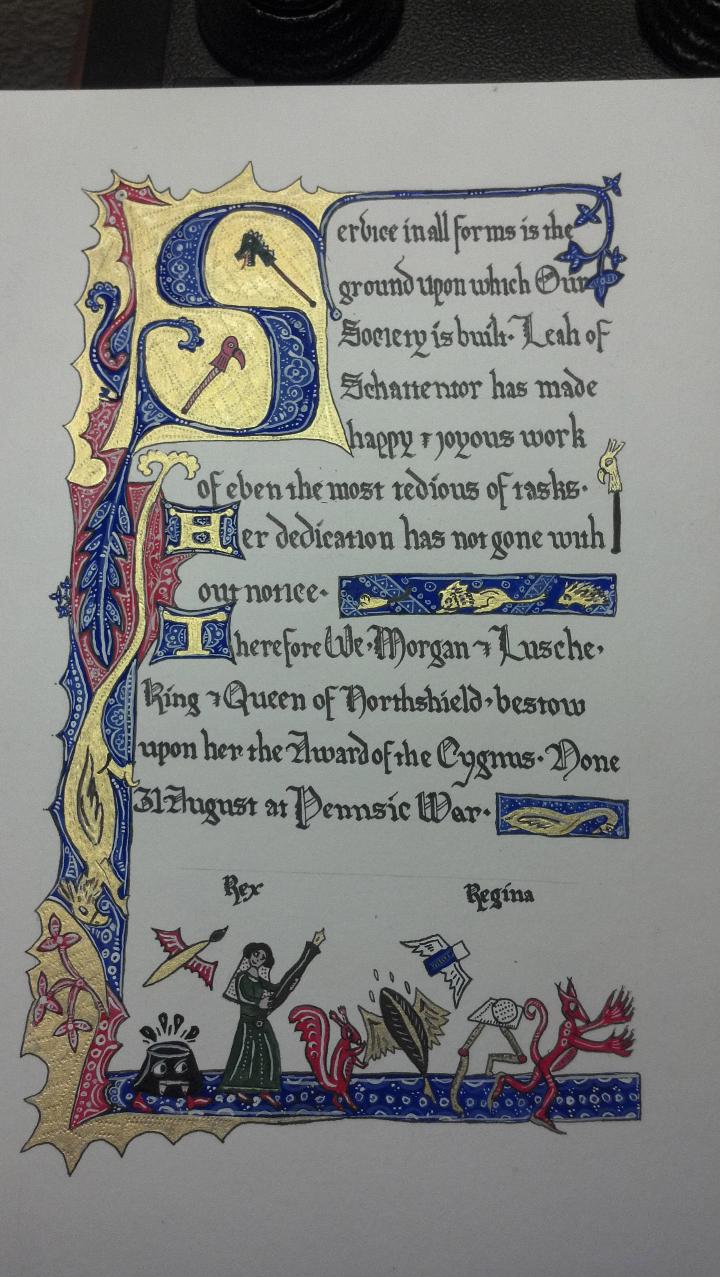 Service in all forms is the
ground upon which Our
Society is built. Leah of
Schattentor has made
happy & joyous work
of even the most tedious of tasks.
Her dedication has not gone with
out notice.
Therefore We, Morgan & Lusche,
King & Queen of Northshield, bestow
upon her the Award of the Cygnus. Done
31 August at Pennsic War.
Rex Regina